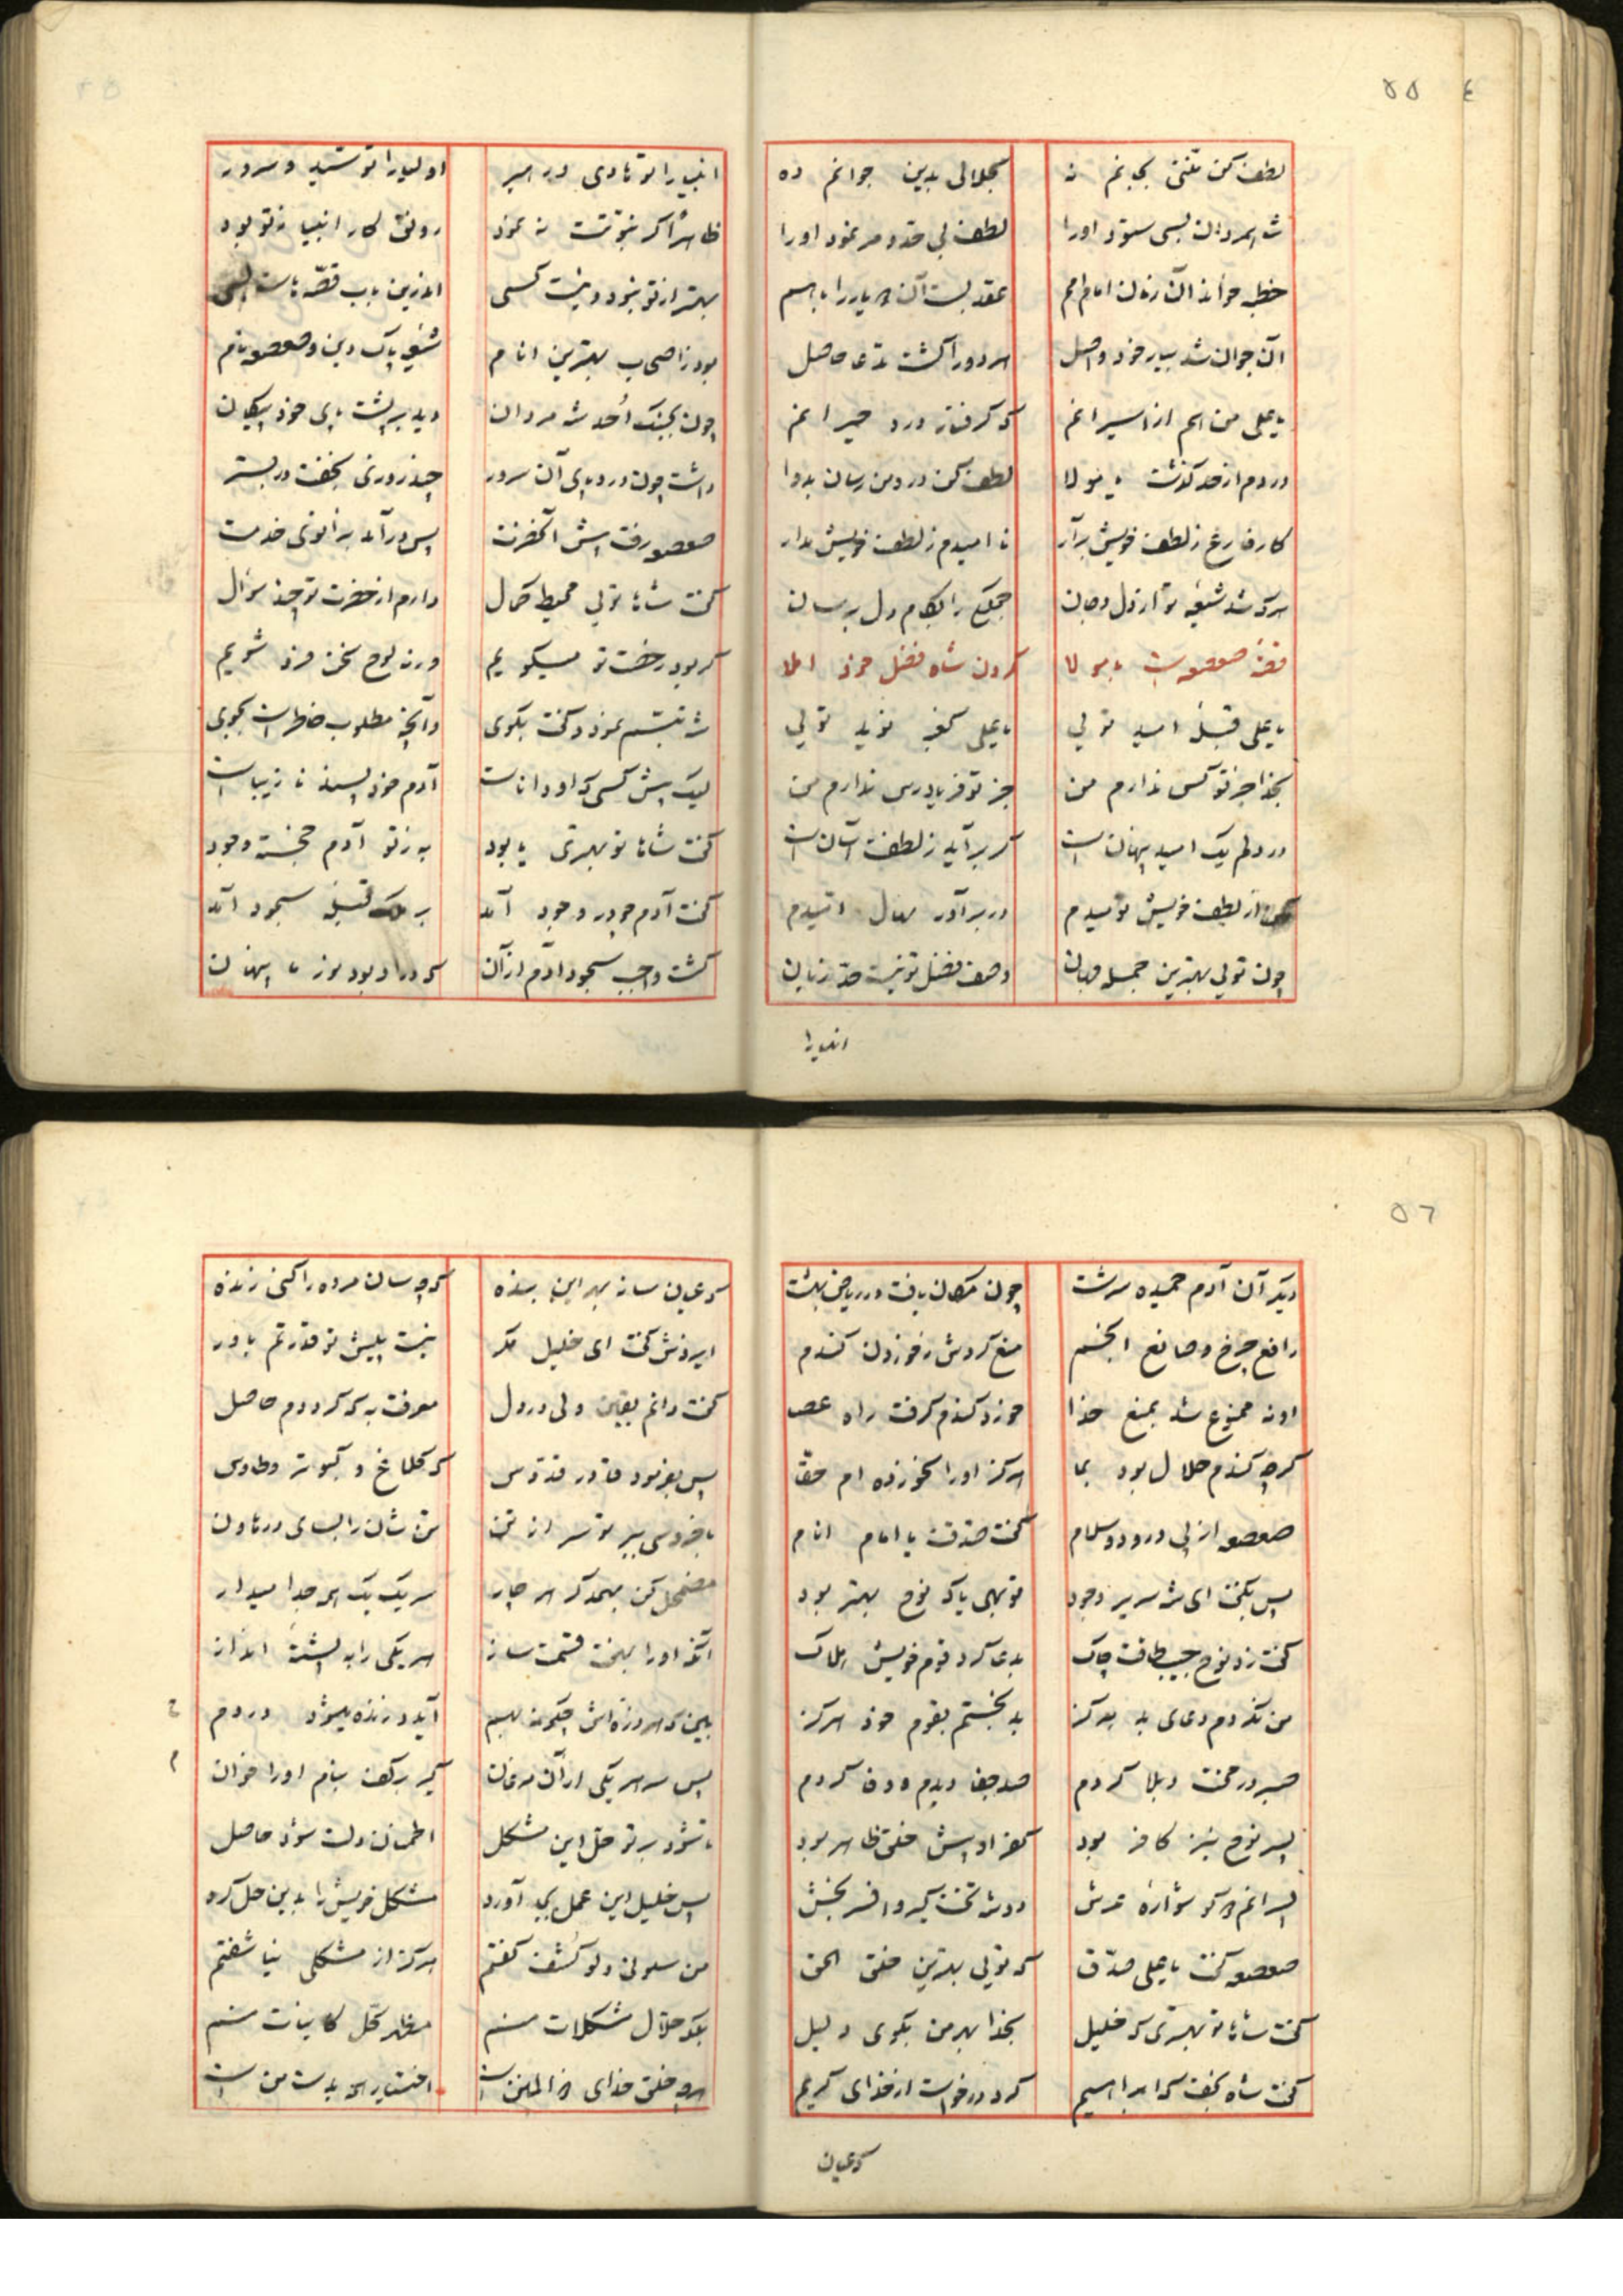 ۵۵
لطف کن منتی بجانم نه بحلالی بدین جوانم ده
شاه مردان بسی ستود اورا لطف بی حد و مر نمود اورا
خطبه خواند آن زمان امام امم عقد بست آن دو یار را با هم
آن جوان شد بیار خود واصل هر دو را گشت مدعا حاصل
یا علی من هم از اسیرانم که گرفتار درد حیرانم
دردم از حد گذشت یا مولا لطف کن درد من رسان بدوا
کار فارغ ز لطف خویش برآر نا امیدم ز لطف خویش مدار
هر که شد شیعه تو از دل و جان جمله را بکام دل برسان
قصه صعصعه با مولا کردن شاه فضل خود املا
یا علی قبله امید تویی یا علی کعبه نوید تویی
بخدا جز تو کس ندارم من جز تو فریادرس ندارم من
در دلم یک امید پنهان است گر برآید ز لطفت آسان است
از لطف خویش نومیدم در برآور نهال امیدم
چون تویی بهترین جمله جهان وصف فضل تو نیست حد زبان
انبیا را
انبیا را تو هادی و رهبر اولیا را تو سید و سرور
ظاهراً گر نبوتت نه نمود رونق کار انبیا ز تو بود
بهتر از تو نبود و نیست کسی اندرین باب قصه هاست بسی
بود ز اصحاب بهترین انام شیعه پاک دین و صعصعه نام
چون بجنگ اُحد شه مردان دید بر پشت پای خود پیکان
داشت چون درد پای آن سرور چند روزی بخفت در بستر
صعصعه رفت پیش آنحضرت پس درآمد بزانوی خدمت
گفت شاها تویی محیط کمال دارم از حضرت تو چند سؤال
گر بود رخصت تو میگویم ورنه لوح سخن فرو شویم
شه تبسم نمود و گفت بگوی وآنچه مطلوب خاطر است بجوی
لیک پیش کسی که او داناست آدم خود پسند نازیباست
گفت شاها تو بهتری یا بود به ز تو آدم خجسته وجود
گفت آدم چو در وجود آمد بر ملک قبله سجود آمد
گشت واجب سجود آدم از آن که در او بود نور ما پنهان
۵٦
دیگر آن آدم حمیده سرشت چون مکان یافت در ریاض بهشت
رافع چرخ و صانع انجم منع کردش ز خوردن گندم
او نه ممنوع شد بمنع خدا خورد گندم گرفت راه عصا
گرچه گندم حلال بود بما هرگز اورا نخورده ام حقا
صعصعه از پی درود و سلام گفت صدقت یا امام انام
پس بگفت ای شه سریر وجود تو بهی یا که نوح بهتر بود
گفت زد نوح جیب طاقت چاک بدعا کرد قوم خویش هلاک
من نکردم دعای بد هرگز بد نجستم بقوم خود هرگز
صبر در محنت و بلا کردم صد جفا دیدم و وفا کردم
پسر نوح نیز کافر بود کفر او پیش خلق ظاهر بود
پسرانم دو گوشواره عرش دو شه تخت گیر و افسر بخش
صعصعه گفت یا علی صدق که تویی بهترین خلق الحق
گفت شاها تو بهتری که خلیل بخدا بهر من بگوی دلیل
گفت شاه نجف که ابراهیم کرد درخواست از خدای کریم
که عیان
که عیان ساز بهر این بنده که چه سان مرده را کنی زنده
ایزدش گفت ای خلیل مگر نیست پیش تو قدرتم باور
گفت دانم یقین ولی در دل معرفت به که گرددم حاصل
پس بفرمود قادر قدوس که کلاغ و کبوتر و طاوس
با خروسی ببر تو سر از تن تن شان را بسای در هاون
مضمحل کن بهمدگر هر چار سر یک یک همه جدا میدار
آنگه اورا به هفت قسمت ساز هر یکی را به پشته انداز
ببین که هر ذره اش چگونه بهم آید و زنده میشود در دم
پس سر هر یکی از آن مرغان گیر بر کف بنام اورا خوان
تا شود بر تو حل این مشکل اطمنان دلت شود حاصل
پس خلیل این عمل بجای آورد مشکل خویش را بدین حل کرد
من سلونی و لو کشف گفتم هرگز از مشکلی نیاشفتم
بلکه حلال مشکلات منم مظهر کل کاینات منم
هرچه خلق خدای ذو المنن است اختیار همه بدست من است